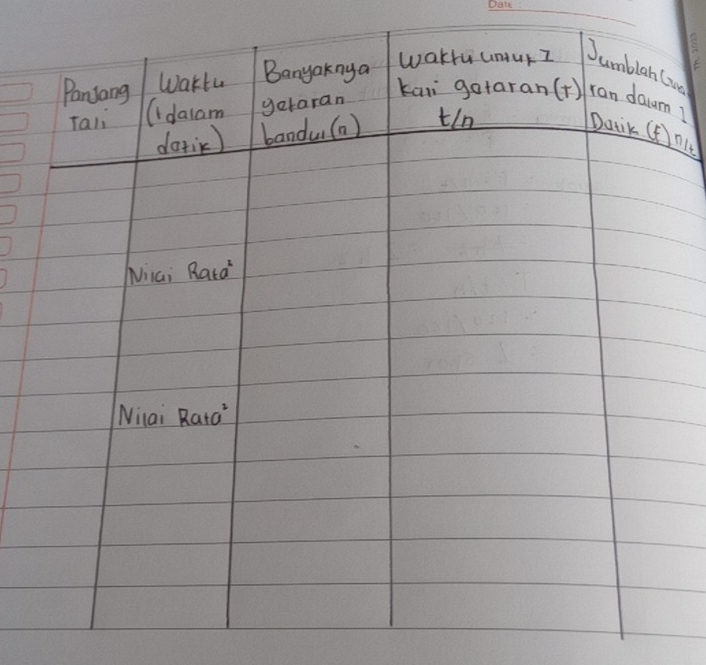 Date :
Panjang
Tali
Waktu
(t dalam
detik)
Banyaknya
getaran
bandul (n)
Waktu untuk 1
kali getaran (T)
t/n
Jumblah Geta
ran dalam 1
Detik (f) n/t
Nilai Rata²
Nilai Rata²